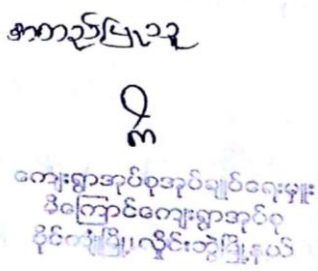 စာတည်ပြုသူ
ကျေးရွာအုပ်စုအုပ်ချုပ်ရေးမှူး
မိကြောင်ကျေးရွာအုပ်စု
ပိုင်ကျုံမြို့၊လှိုင်းဘွဲ့မြို့နယ်